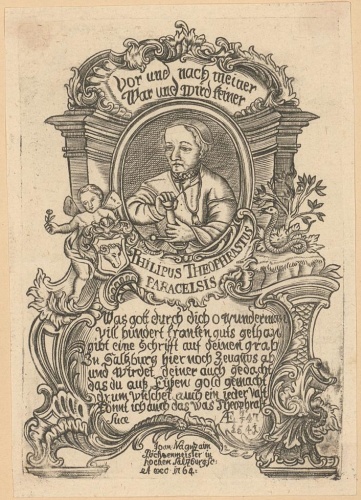 Vor und nach meiner
War und wird keiner
PHILIPUS THEOPHRASTUS
PARACELSIS
Was gott durch dich o wunderman
Vill hundert kranken guts gethan
gibt eine Schrift auf deinen grab
In Saltzburg hier noch Zeugnus ab
und wirdet deiner auch gedacht
das du auß Eysen gold gemacht
drum winschet auch ein jeder vast
könnt ich auch das was Theophrast
Æ
Joan
in
hochen Saltzburg
64